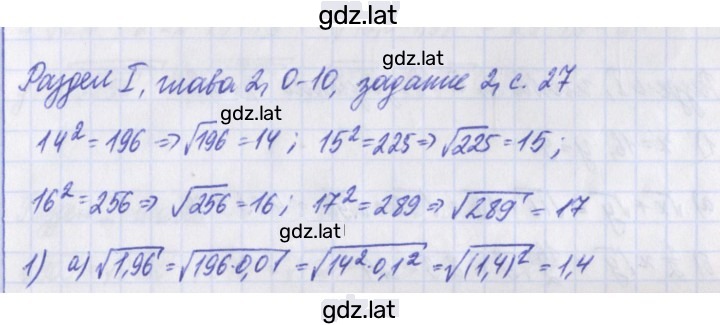 gdz.lat
Раздел I, глава 2, О-10, задание 2, с. 27
gdz.lat
gdz.lat
14² = 196 ⇒ √196 = 14; 15² = 225 ⇒ √225 = 15;
16² = 256 ⇒ √256 = 16; 17² = 289 ⇒ √289 = 17
gdz.lat
1) а) √1,96 = √196·0,01 = √14²·0,1² = √(1,4)² = 1,4
gdz.lat